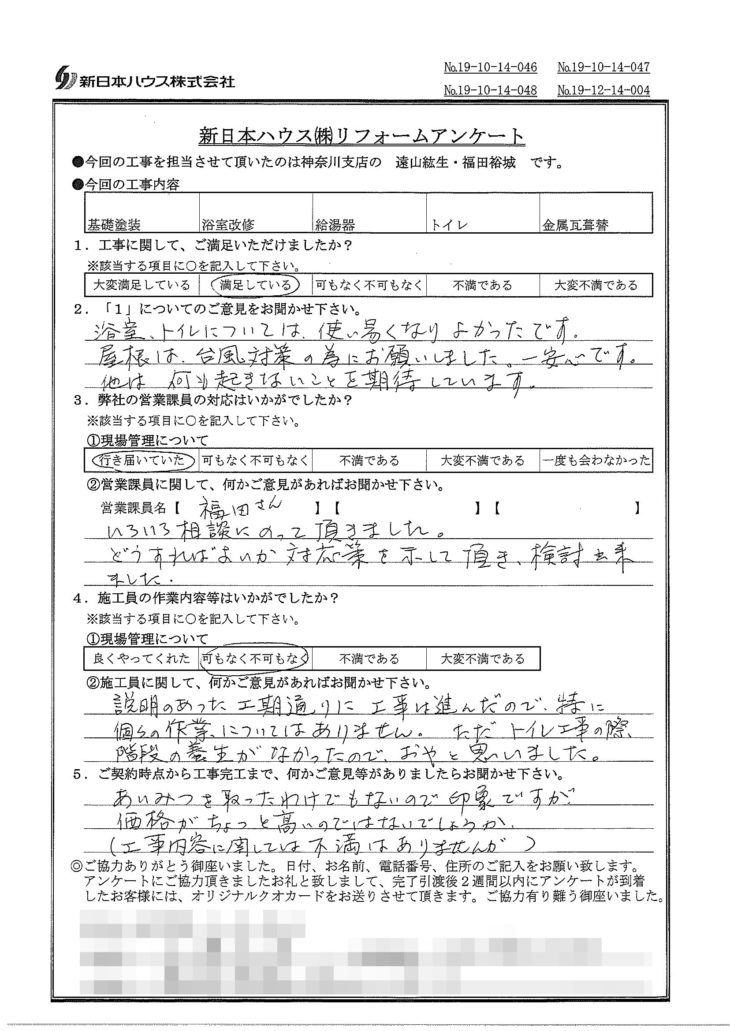 新日本ハウス株式会社
No.19-10-14-046 No.19-10-14-047
No.19-10-14-048 No.19-12-14-004
新日本ハウス㈱リフォームアンケート
●今回の工事を担当させて頂いたのは神奈川支店の 遠山紘生・福田裕城 です。
●今回の工事内容
基礎塗装 浴室改修 給湯器 トイレ 金属瓦葺替
１．工事に関して、ご満足いただけましたか？
※該当する項目に○を記入して下さい。
大変満足している 満足している 可もなく不可もなく 不満である 大変不満である
２．「１」についてのご意見をお聞かせ下さい。
浴室、トイレについては、使い易くなり よかったです。
屋根は、台風対策の為にお願いしました。一安心です。
他は 何も起きないことを期待しています。
３．弊社の営業課員の対応はいかがでしたか？
※該当する項目に○を記入して下さい。
①現場管理について
行き届いていた 可もなく不可もなく 不満である 大変不満である 一度も会わなかった
②営業課員に関して、何かご意見があればお聞かせ下さい。
営業課員名【 福田さん 】【 】【 】
いろいろ相談にのって頂きました。
どうすればよいか 対応策を示して頂き、検討出来
ました。
４．施工員の作業内容等はいかがでしたか？
※該当する項目に○を記入して下さい。
①現場管理について
良くやってくれた 可もなく不可もなく 不満である 大変不満である
②施工員に関して、何かご意見があればお聞かせ下さい。
説明のあった工期通りに 工事は進んだので、特に
個々の作業についてはありません。 ただ トイレ工事の際、
階段の養生がなかったので、おやと思いました。
５．ご契約時点から工事完工まで、何かご意見等がありましたらお聞かせ下さい。
あいみつを取ったわけでもないので 印象ですが
価格がちょっと高いのではないでしょうか。
（工事内容に関しては不満はありませんが）
◎ご協力ありがとう御座いました。日付、お名前、電話番号、住所のご記入をお願い致します。
アンケートにご協力頂きましたお礼と致しまして、完了引渡後２週間以内にアンケートが到着
したお客様には、オリジナルクオカードをお送りさせて頂きます。ご協力有り難う御座いました。